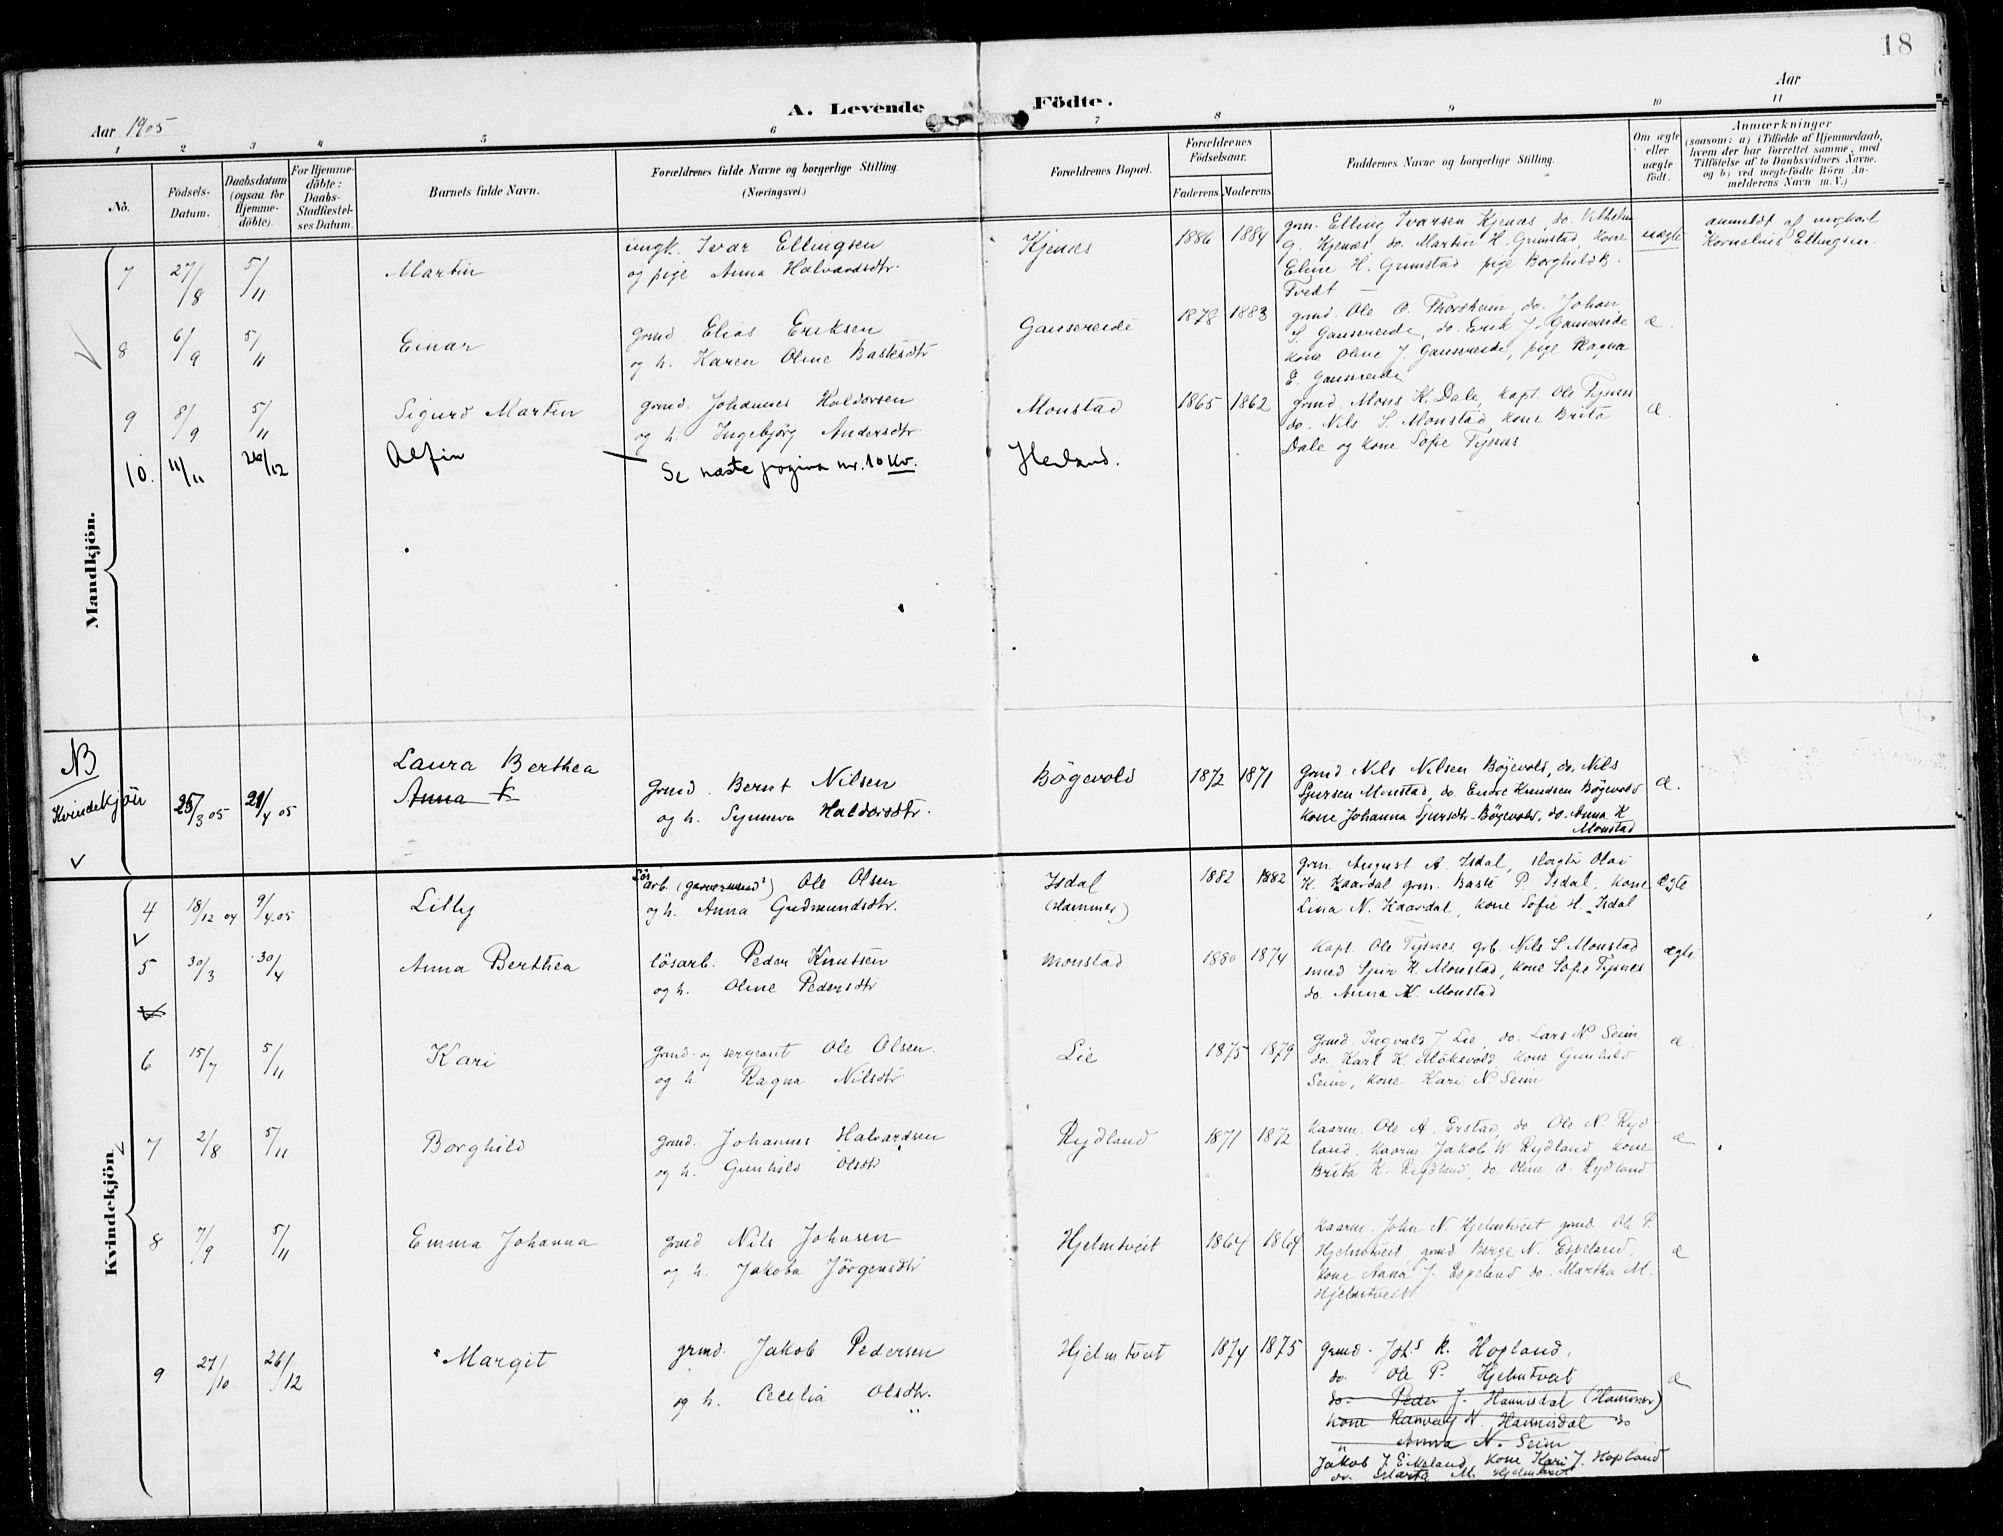 18
A. Levende Födte.
Aar 1905
Aar
1 2 3 4 5 6 7 8 9 10 11
No.
Födsels-
Datum.
Daabsdatum
(ogsaa for
Hjemme-
döbte).
For Hjemme-
döbte:
Daabs-
Stadfæstel-
ses Datum.
Barnets fulde Navn.
Forældrenes fulde Navne og borgerlige Stilling.
(Næringsvei.)
Forældrenes Bopæl.
Forældrenes
Födselsaar.
Faderens Moderens
Faddernes Navne og borgerlige Stilling.
Om ægte
eller
uægte
födt.
Anmærkninger
(saasom: a) i Tilfælde af Hjemmedaab,
hvem der har forrettet samme, med
Tilföielse af to Daabsvidners Navne.
og b) ved uægtefödte Börn An-
melderens Navn m. V.)
Mandkjön.
7 27/8 5/11 Martin
ungk. Ivar Ellingsen
og pige Anna Halvardsdtr.
Kjenes 1886 1884
grm. Elling Ivarsen Kjenes, do. Vilhelm
G. Kjenes do. Martin H. Grimstad, kone
Eline H. Grimstad pige Borghild B.
Tvedt
uægte
anmeldt af ungkarl
Kornelius Ellingsen.
8 6/9 5/11 Einar
grmd. Elias Eriksen
og h. Karen Oline Bastesdtr
Gansereide 1878 1883
grmd. Ole O. Thorsheim, do. Johan
S. Gansereide, do. Erik J. Gansereide
kone Oline J. Gansereide, pige Ragna
E. Gansereide
æ.
9 8/9 5/11 Sigurd Martin
grmd. Johannes Haldorsen
og h. Ingebjörg Andersdtr.
Monstad 1865 1862
grmd Mons K. Dale, kapt. Ole Tysnes
do. Nils S. Monstad, kone Brita
Dale og kone Sofie Tysnes
æ
10. 11/11 26/12 Alfin
Se næste pagina nr. 10 Kv.
Herland.
NB
Kvindekjön
25/3 05 24/4 05
Laura Berthea
Anna K
grmd. Bernt Nilsen
og h. Synneva Haldorsdtr.
Bögevold 1872 1871
grmd Nils Nilsen Böjevold, do. Nils
Sjursen Monstad, do Endre Knudsen Bögevold
kone Johanna Sjursdtr. Bögevold, do. Anna K
Monstad
æ.
Kvindekjön
4 18/12 04 9/4.05 Lilly
Lösarb. (garversvend) Ole Olsen
og h. Anna Gudmundsdtr.
Isdal
(Hammer)
1882 1882
grm. August A. Isdal, slagter Olai
K. Kaardal grm. Baste P. Isdal, kone
Lina N. Kaardal, kone Sofie H. Isdal
ægte
5 30/3 30/4 Anna Berthea
lösarb. Peder Knutsen
og h. Oline Pedersdtr
Monstad 1880 1874
Kapt. Ole Tysnes grb. Nils S Monstad
smed Sjur K. Monstad, kone Sofie Tysnes
do. Anna K. Monstad
ægte
6 15/7 5/11 Kari
grmd. og sergeant Ole Olsen.
og h. Ragna Nilsdtr
Lie 1875 1879
grmd. Ingvald J. Lie, do. Lars N. Seim
do. Karl K. Möksvold, kone Gunhild
Seim, kone Kari N Seim
æ.
7 2/8 5/11 Borghild
grmd. Johannes Halvardsen
og h. Gunhild Olsdtr
Rydland 1871 1872
kaarm. Ole A. Erstad, do Ole N. Ryd-
land, kaarm. Jakob W Rydland, kone
Brita K. Rydland, do. Oline O. Rydland
æ
8 7/9 5/11 Emma Johanna
grmd Nils Johnsen
og h. Jakoba Jörgensdtr
Hjelmtveit 1864 1864
kaarm. John N. Hjelmtveit grmd. Ole P.
Hjelmtveit, grmd Berge N. Espeland,
kone Anna J. Espeland do. Martha M.
Hjelmtveit
æ
9 27/10 26/12 Margit
grmd. Jakob Pedersen
og h. Cecelia Olsdtr.
Hjelmtveit 1874 1875
grmd. Johs R. Hopland,
do. Ole P. Hjelmtveit
do. Peder J. Hannisdal (Hammer)
kone Ranveig N. Hannisdal do
" Anna N. Seim
Jakob J. Eikeland, kone Kari J. Hopland
do. Marta M. Hjelmtveit
æ